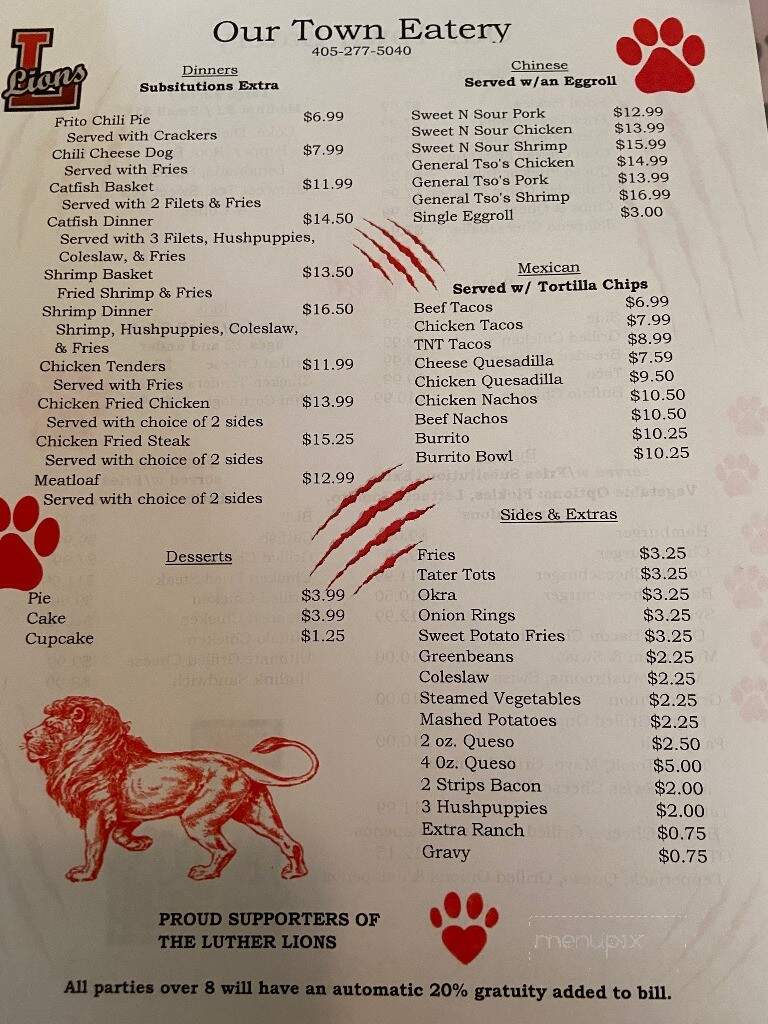 L
Lions
Our Town Eatery
405-277-5040
Dinners
Subsitutions Extra
Frito Chili Pie $6.99
Served with Crackers
Chili Cheese Dog $7.99
Served with Fries
Catfish Basket $11.99
Served with 2 Filets & Fries
Catfish Dinner $14.50
Served with 3 Filets, Hushpuppies,
Coleslaw, & Fries
Shrimp Basket $13.50
Fried Shrimp & Fries
Shrimp Dinner $16.50
Shrimp, Hushpuppies, Coleslaw,
& Fries
Chicken Tenders $11.99
Served with Fries
Chicken Fried Chicken $13.99
Served with choice of 2 sides
Chicken Fried Steak $15.25
Served with choice of 2 sides
Meatloaf $12.99
Served with choice of 2 sides
Desserts
Pie $3.99
Cake $3.99
Cupcake $1.25
Chinese
Served w/an Eggroll
Sweet N Sour Pork $12.99
Sweet N Sour Chicken $13.99
Sweet N Sour Shrimp $15.99
General Tso's Chicken $14.99
General Tso's Pork $13.99
General Tso's Shrimp $16.99
Single Eggroll $3.00
Mexican
Served w/ Tortilla Chips
Beef Tacos $6.99
Chicken Tacos $7.99
TNT Tacos $8.99
Cheese Quesadilla $7.59
Chicken Quesadilla $9.50
Chicken Nachos $10.50
Beef Nachos $10.50
Burrito $10.25
Burrito Bowl $10.25
Sides & Extras
Fries $3.25
Tater Tots $3.25
Okra $3.25
Onion Rings $3.25
Sweet Potato Fries $3.25
Greenbeans $2.25
Coleslaw $2.25
Steamed Vegetables $2.25
Mashed Potatoes $2.25
2 oz. Queso $2.50
4 0z. Queso $5.00
2 Strips Bacon $2.00
3 Hushpuppies $2.00
Extra Ranch $0.75
Gravy $0.75
PROUD SUPPORTERS OF
THE LUTHER LIONS
menupix
All parties over 8 will have an automatic 20% gratuity added to bill.